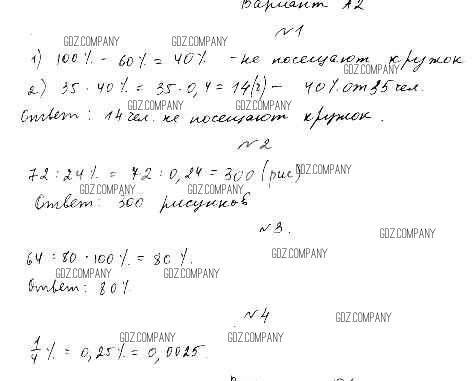 Вариант А2
№1
1) 100% - 60% = 40% - не посещают кружок
2) 35 · 40% = 35 · 0,4 = 14(ч) - 40% от 35 чел.
Ответ: 14 чел. не посещают кружок.
№2
72 : 24% = 72 : 0,24 = 300 (рис)
Ответ: 300 рисунков
№3.
64 : 80 · 100% = 80%.
Ответ: 80%
№4
1/4% = 0,25% = 0,0025.
GDZ.COMPANY GDZ.COMPANY
GDZ.COMPANY
GDZ.COMPANY GDZ.COMPANY
GDZ.COMPANY
GDZ.COMPANY GDZ.COMPANY
GDZ.COMPANY
GDZ.COMPANY
GDZ.COMPANY GDZ.COMPANY
GDZ.COMPANY
GDZ.COMPANY GDZ.COMPANY